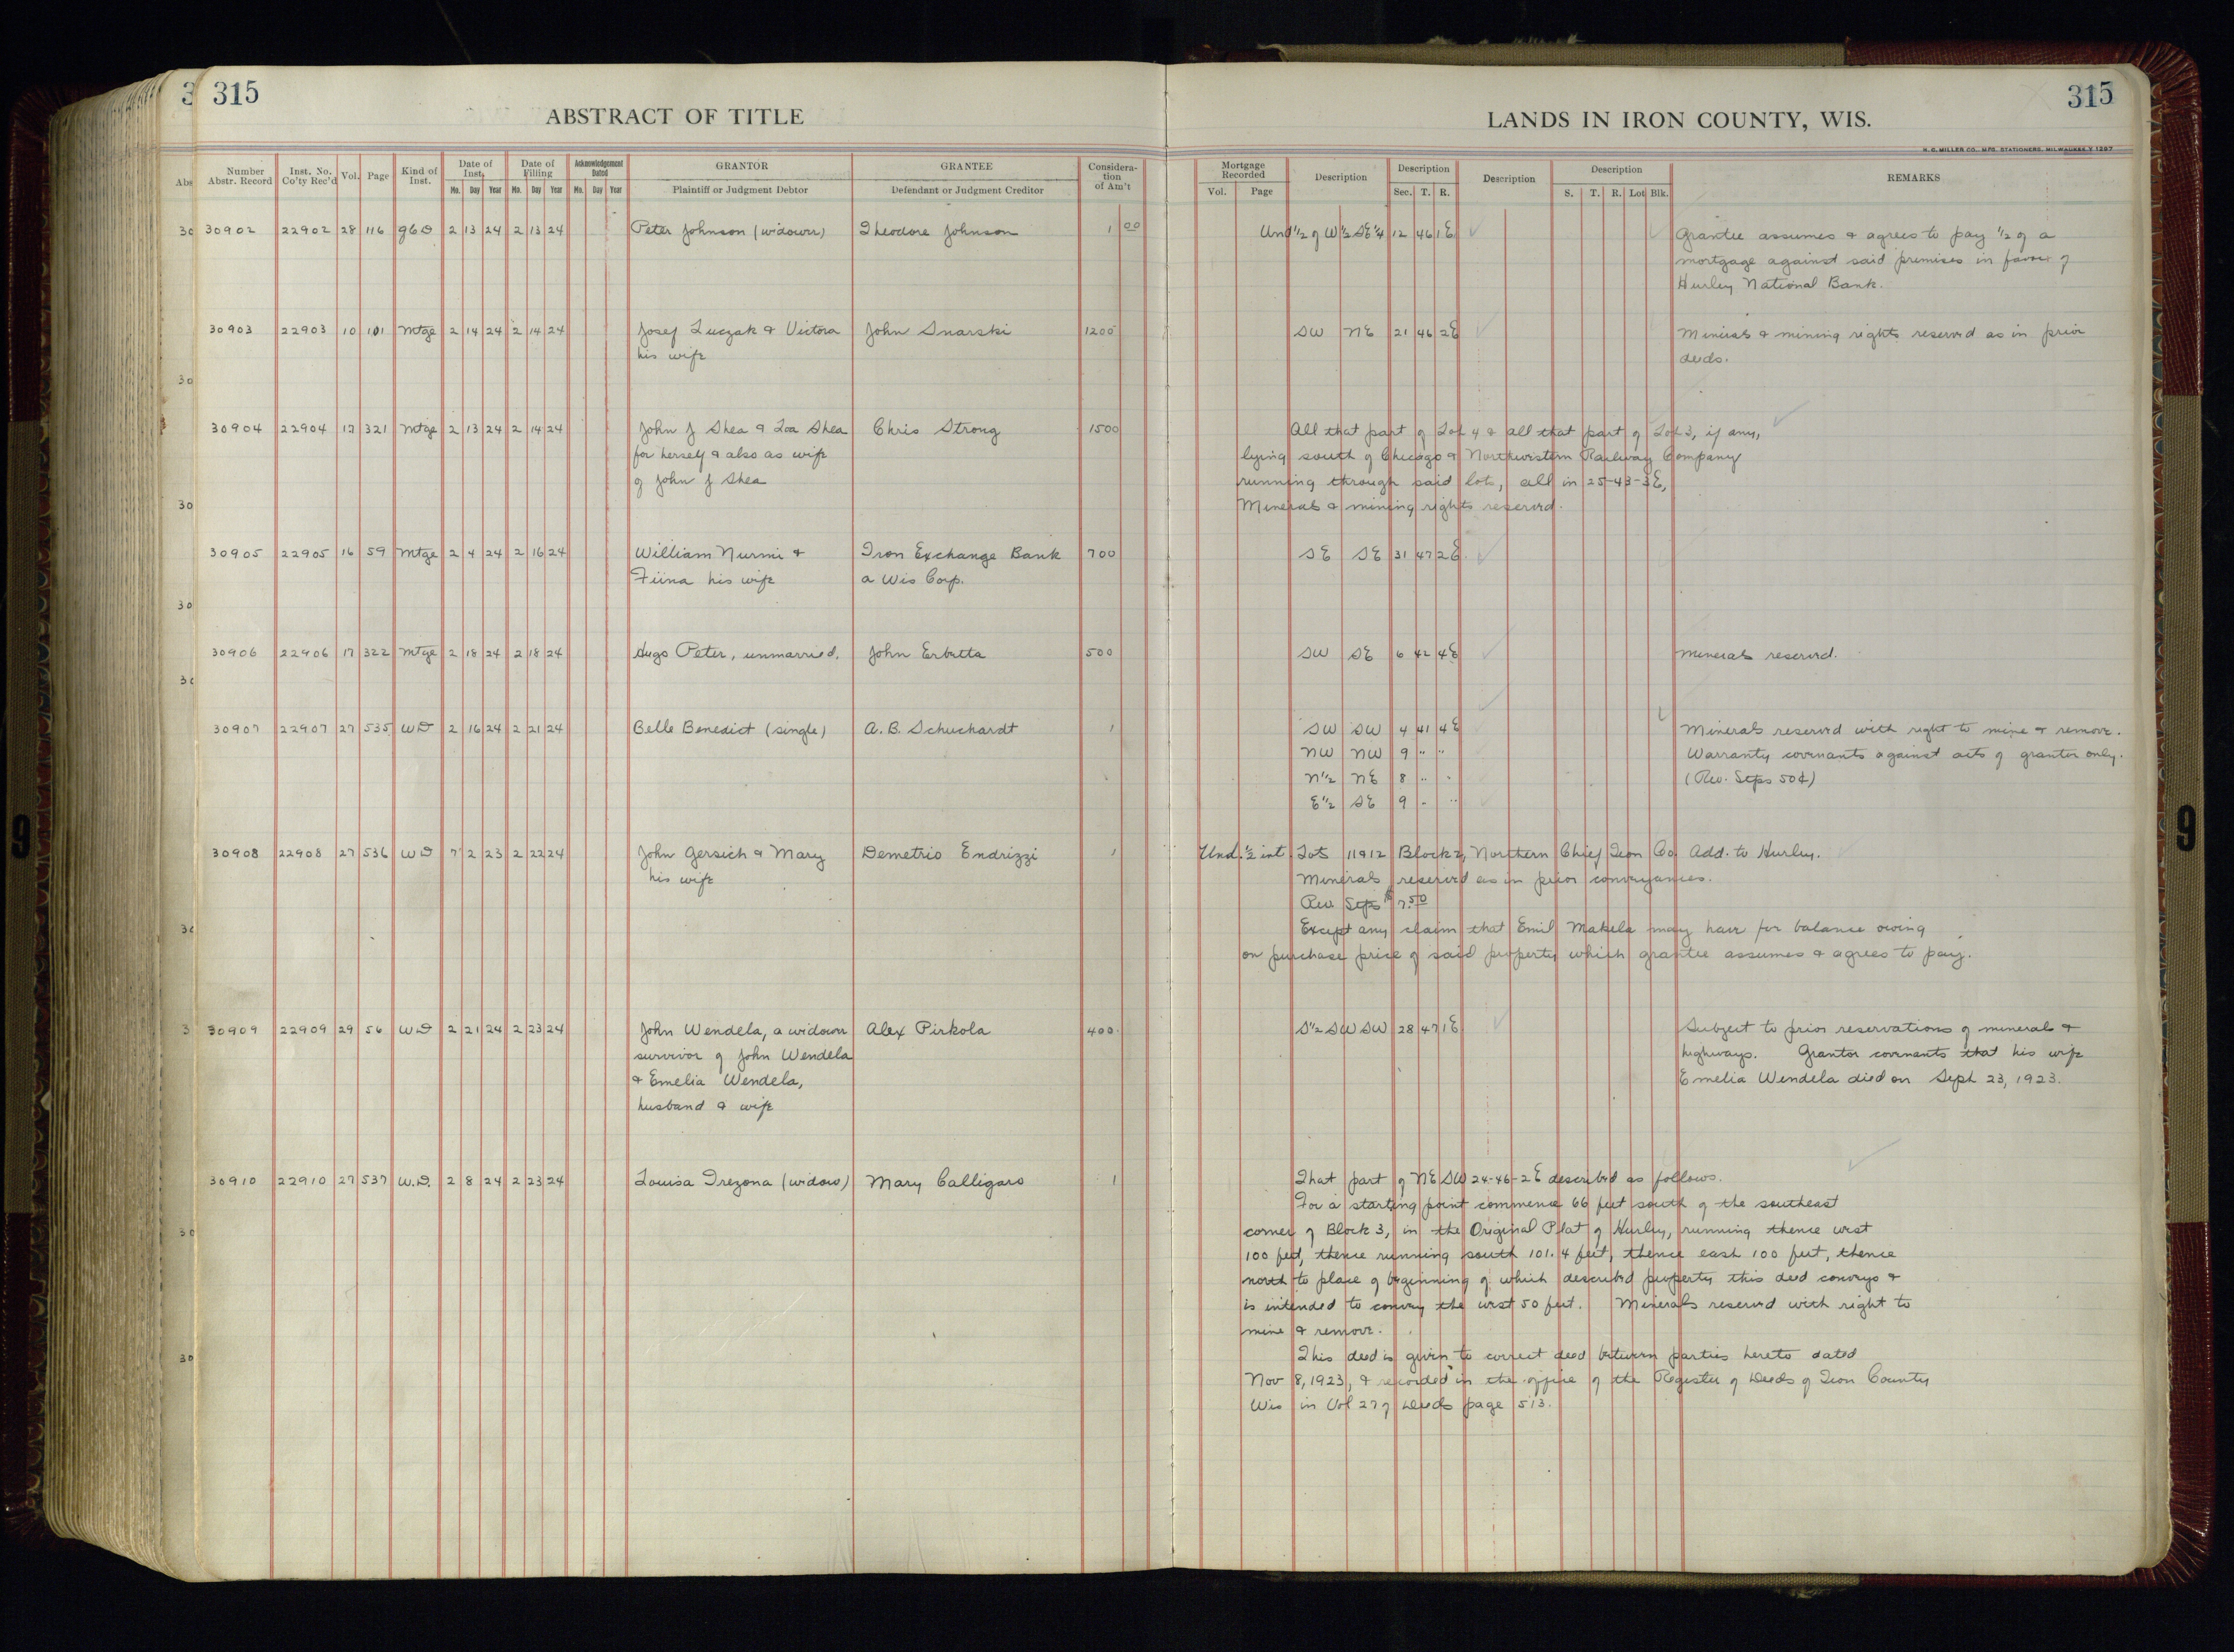 315
ABSTRACT OF TITLE
LANDS IN IRON COUNTY, WIS.
315
H. C. MILLER CO., MFG. STATIONERS, MILWAUKEE
Number Abstr. Record | Inst. No. Co'ty Rec'd | Vol. | Page | Kind of Inst. | Date of Inst. Mo. Day Year | Date of Filing Mo. Day Year | Acknowledgement Dated Mo. Day Year | GRANTOR Plaintiff or Judgment Debtor | GRANTEE Defendant or Judgment Creditor | Consideration of Am't | Mortgage Recorded Vol. Page | Description | Description Sec. T. R. | Description | Description S. T. R. Lot Blk. | REMARKS
30902 22902 28 116 2 13 24 2 13 24 Peter Johnson (widower) Theodore Johnson 1 00 Und 1/2 of W 1/2 SE 1/4 12 46 1E Grantee assumes & agrees to pay 1/2 of a
mortgage against said premises in favor of
Hurley National Bank.
30903 22903 10 101 Mtge 2 14 24 2 14 24 Josef Luczak & Victora John Snarski 1200 SW NE 21 46 2E Minerals & mining rights reserved as in prior
his wife deeds.
30904 22904 17 321 Mtge 2 13 24 2 14 24 John J Shea & Zoa Shea Chris Strong 1500 All that part of Lot 4 & all that part of Lot 3, if any,
for herself & also as wife lying south of Chicago & Northwestern Railway Company
of John J Shea running through said lots, all in 25-43-3E,
Minerals & mining rights reserved.
30905 22905 16 59 Mtge 2 4 24 2 16 24 William Nurmi & Iron Exchange Bank 700 SE SE 31 47 2E
Fiina his wife a Wis Corp.
30906 22906 17 322 Mtge 2 18 24 2 18 24 Hugo Peter, unmarried. John Erbetta 500 SW SE 6 42 4E Minerals reserved.
30907 22907 27 535 WD 2 16 24 2 21 24 Belle Benedict (single) A. B. Schuchardt 1 SW SW 4 41 4E Minerals reserved with right to mine & remove.
NW NW 9 " " Warranty covenants against acts of grantor only.
N 1/2 NE 8 " " (Rev. Stps 50¢)
E 1/2 SE 9 " "
30908 22908 27 536 WD 7 2 23 2 22 24 John Gersich & Mary Demetrio Endrizzi 1 Und. 1/2 int. Lots 11 & 12 Block 2, Northern Chief Iron Co. Add. to Hurley.
his wife Minerals reserved as in prior conveyances.
Rev. Stps $7.50
Except any claim that Emil Makela may have for balance owing
on purchase price of said property which grantee assumes & agrees to pay.
30909 22909 29 56 WD 2 21 24 2 23 24 John Wendela, a widower Alex Pirkola 400 S 1/2 SW SW 28 47 1E Subject to prior reservations of mineral &
survivor of John Wendela highways. Grantor covenants that his wife
& Emelia Wendela, Emelia Wendela died on Sept 23, 1923.
husband & wife
30910 22910 27 537 W.D. 2 8 24 2 23 24 Louisa Trezona (widow) Mary Calligaro 1 That part of NE SW 24-46-2E described as follows.
For a starting point commence 66 feet south of the southeast
corner of Block 3, in the Original Plat of Hurley, running thence west
100 feet, thence running south 101.4 feet, thence east 100 feet, thence
north to place of beginning of which described property this deed conveys &
is intended to convey the west 50 feet. Minerals reserved with right to
mine & remove.
This deed is given to correct deed between parties hereto dated
Nov 8, 1923, & recorded in the office of the Register of Deeds of Iron County
Wis in Vol 27 of Deeds page 513.
9
9